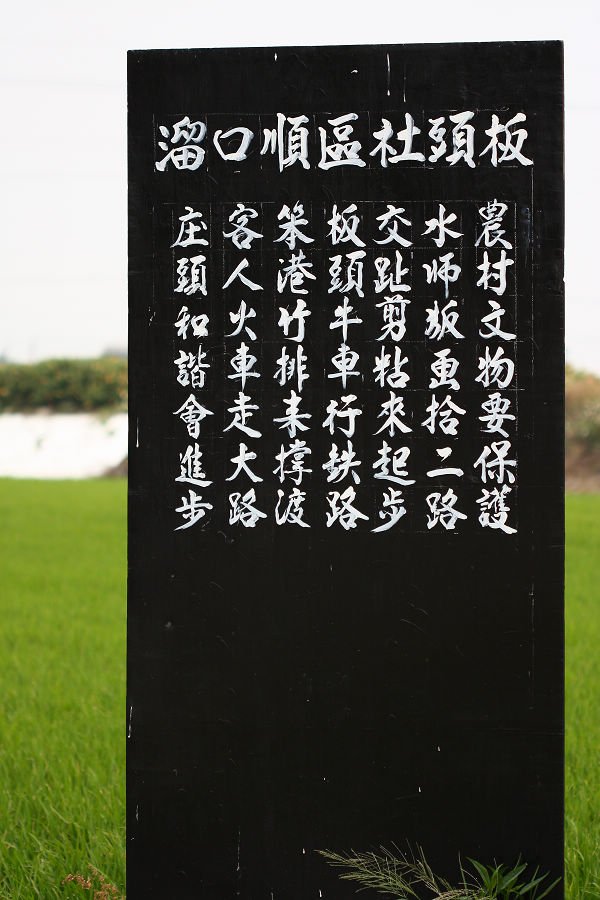 板頭社區順口溜
農村文物要保護
水师版画拾二路
交趾剪粘來起步
板頭牛車行鉄路
笨港竹排来撑渡
客人火車走大路
庄頭和諧會進步